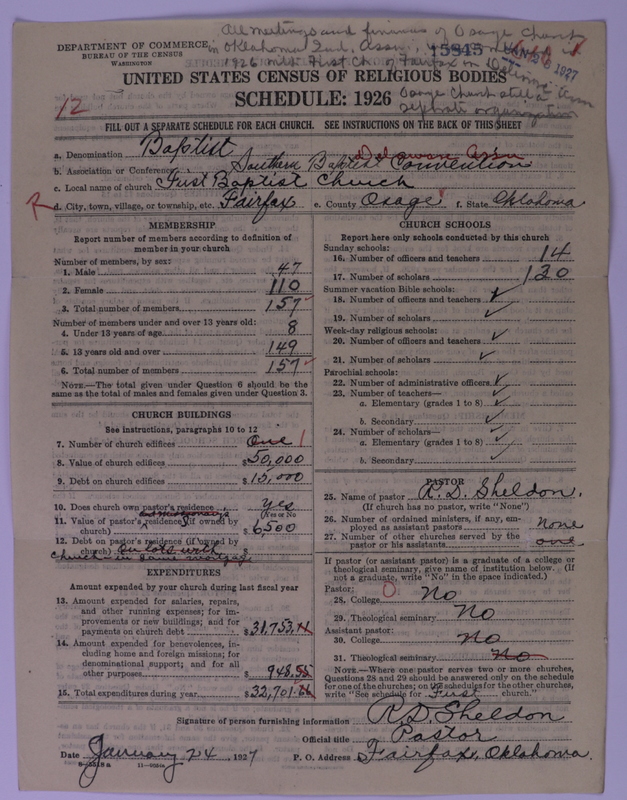 All meetings and finances of Osage Church
DEPARTMENT OF COMMERCE,
in Oklahoma 2nd. Assn.,
15845
BUREAU OF THE CENSUS
WASHINGTON
1926 with First Ch. of Fairfax in
1927
UNITED STATES CENSUS OF RELIGIOUS BODIES
Osage Church still a
SCHEDULE: 1926
separate organization
12
FILL OUT A SEPARATE SCHEDULE FOR EACH CHURCH. SEE INSTRUCTIONS ON THE BACK OF THIS SHEET
a. Denomination Baptist
Delaware Ass'n
b. Association or Conference Southern Baptist Convention
c. Local name of church First Baptist Church
R d. City, town, village, or township, etc. Fairfax e. County Osage f. State Oklahoma
MEMBERSHIP
Report number of members according to definition of
member in your church
Number of members, by sex:
1. Male 47
2. Female 110
3. Total number of members 157
Number of members under and over 13 years old:
4. Under 13 years of age 8
5. 13 years old and over 149
6. Total number of members 157
NOTE.—The total given under Question 6 should be the
same as the total of males and females given under Question 3.
CHURCH BUILDINGS
See instructions, paragraphs 10 to 12
7. Number of church edifices One 1
8. Value of church edifices $50,000
9. Debt on church edifices $15,000
10. Does church own pastor's residence yes
(Yes or No)
11. Value of pastor's residence (if owned by
church) $6,500
12. Debt on pastor's residence (if owned by
church) On lots with
church in same mortgage
EXPENDITURES
Amount expended by your church during last fiscal year
13. Amount expended for salaries, repairs,
and other running expenses; for im-
provements or new buildings; and for
payments on church debt $31,753.11
14. Amount expended for benevolences, in-
cluding home and foreign missions; for
denominational support; and for all
other purposes $948.55
15. Total expenditures during year $32,701.66
CHURCH SCHOOLS
Report here only schools conducted by this church
Sunday schools:
16. Number of officers and teachers 14
17. Number of scholars 120
Summer vacation Bible schools:
18. Number of officers and teachers ✓
19. Number of scholars ✓
Week-day religious schools:
20. Number of officers and teachers ✓
21. Number of scholars ✓
Parochial schools:
22. Number of administrative officers ✓
23. Number of teachers—
a. Elementary (grades 1 to 8) ✓
b. Secondary ✓
24. Number of scholars—
a. Elementary (grades 1 to 8) ✓
b. Secondary ✓
PASTOR
25. Name of pastor R. D. Sheldon.
(If church has no pastor, write "None")
26. Number of ordained ministers, if any, em-
ployed as assistant pastors None
27. Number of other churches served by the
pastor or his assistants one
If pastor (or assistant pastor) is a graduate of a college or
theological seminary, give name of institution below. (If
not a graduate, write "No" in the space indicated.)
Pastor: O
28. College No
29. Theological seminary No
Assistant pastor:
30. College No
31. Theological seminary No
NOTE.—Where one pastor serves two or more churches,
Questions 28 and 29 should be answered only on the schedule
for one of the churches; on the schedules for the other churches,
write "See schedule for First church."
Signature of person furnishing information R.D. Sheldon
Official title Pastor
Date January 24, 1927 P. O. Address Fairfax, Oklahoma.
8—5518a 11—9554a